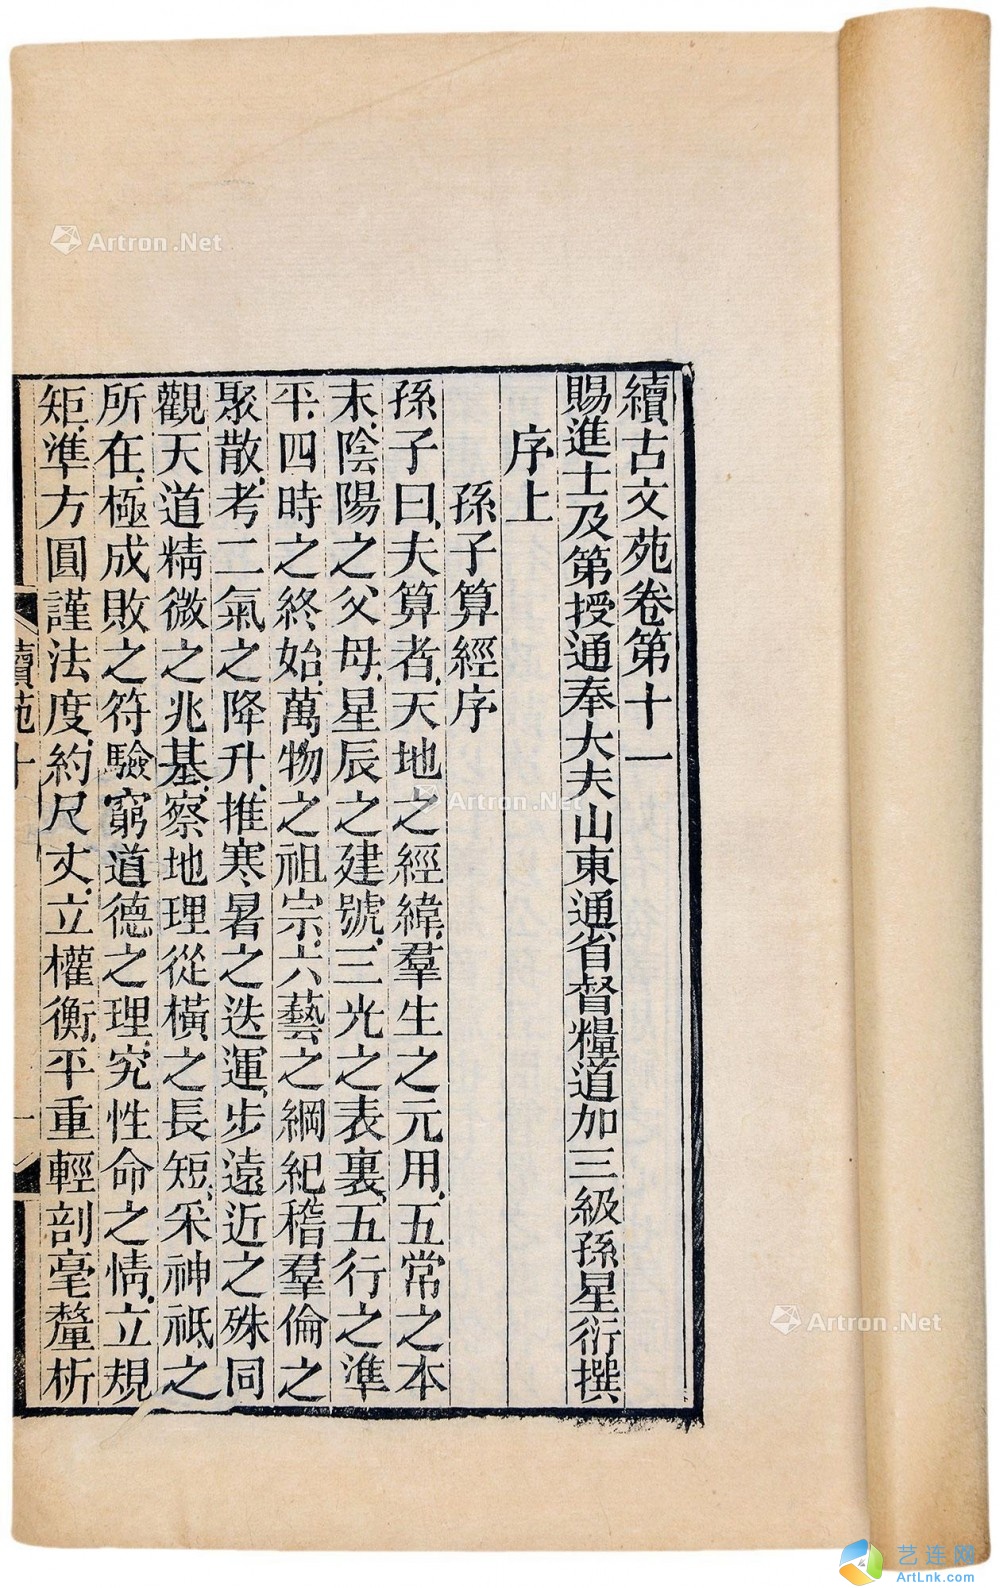 續古文苑卷第十一
賜進士及第授通奉大夫山東通省督糧道加三級孫星衍撰
序上
孫子算經序
孫子曰夫算者天地之經緯羣生之元用五常之本
末陰陽之父母星辰之建號三光之表裏五行之準
平四時之終始萬物之祖宗六藝之綱紀稽羣倫之
聚散考二氣之降升推寒暑之迭運步遠近之殊同
觀天道精微之兆基察地理從橫之長短采神祇之
所在極成敗之符驗窮道德之理究性命之情立規
矩準方圓謹法度約尺丈立權衡平重輕剖毫釐析
續苑十
一
Artron.Net
Artron.Net
Artron.Net
艺连网
ArtLnk.com